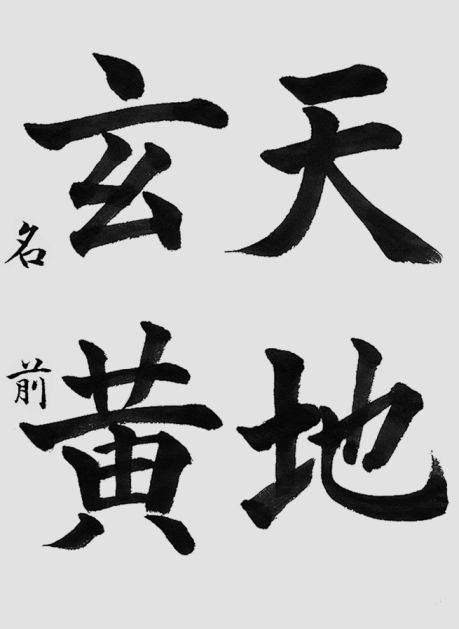 天地
玄黄
名前